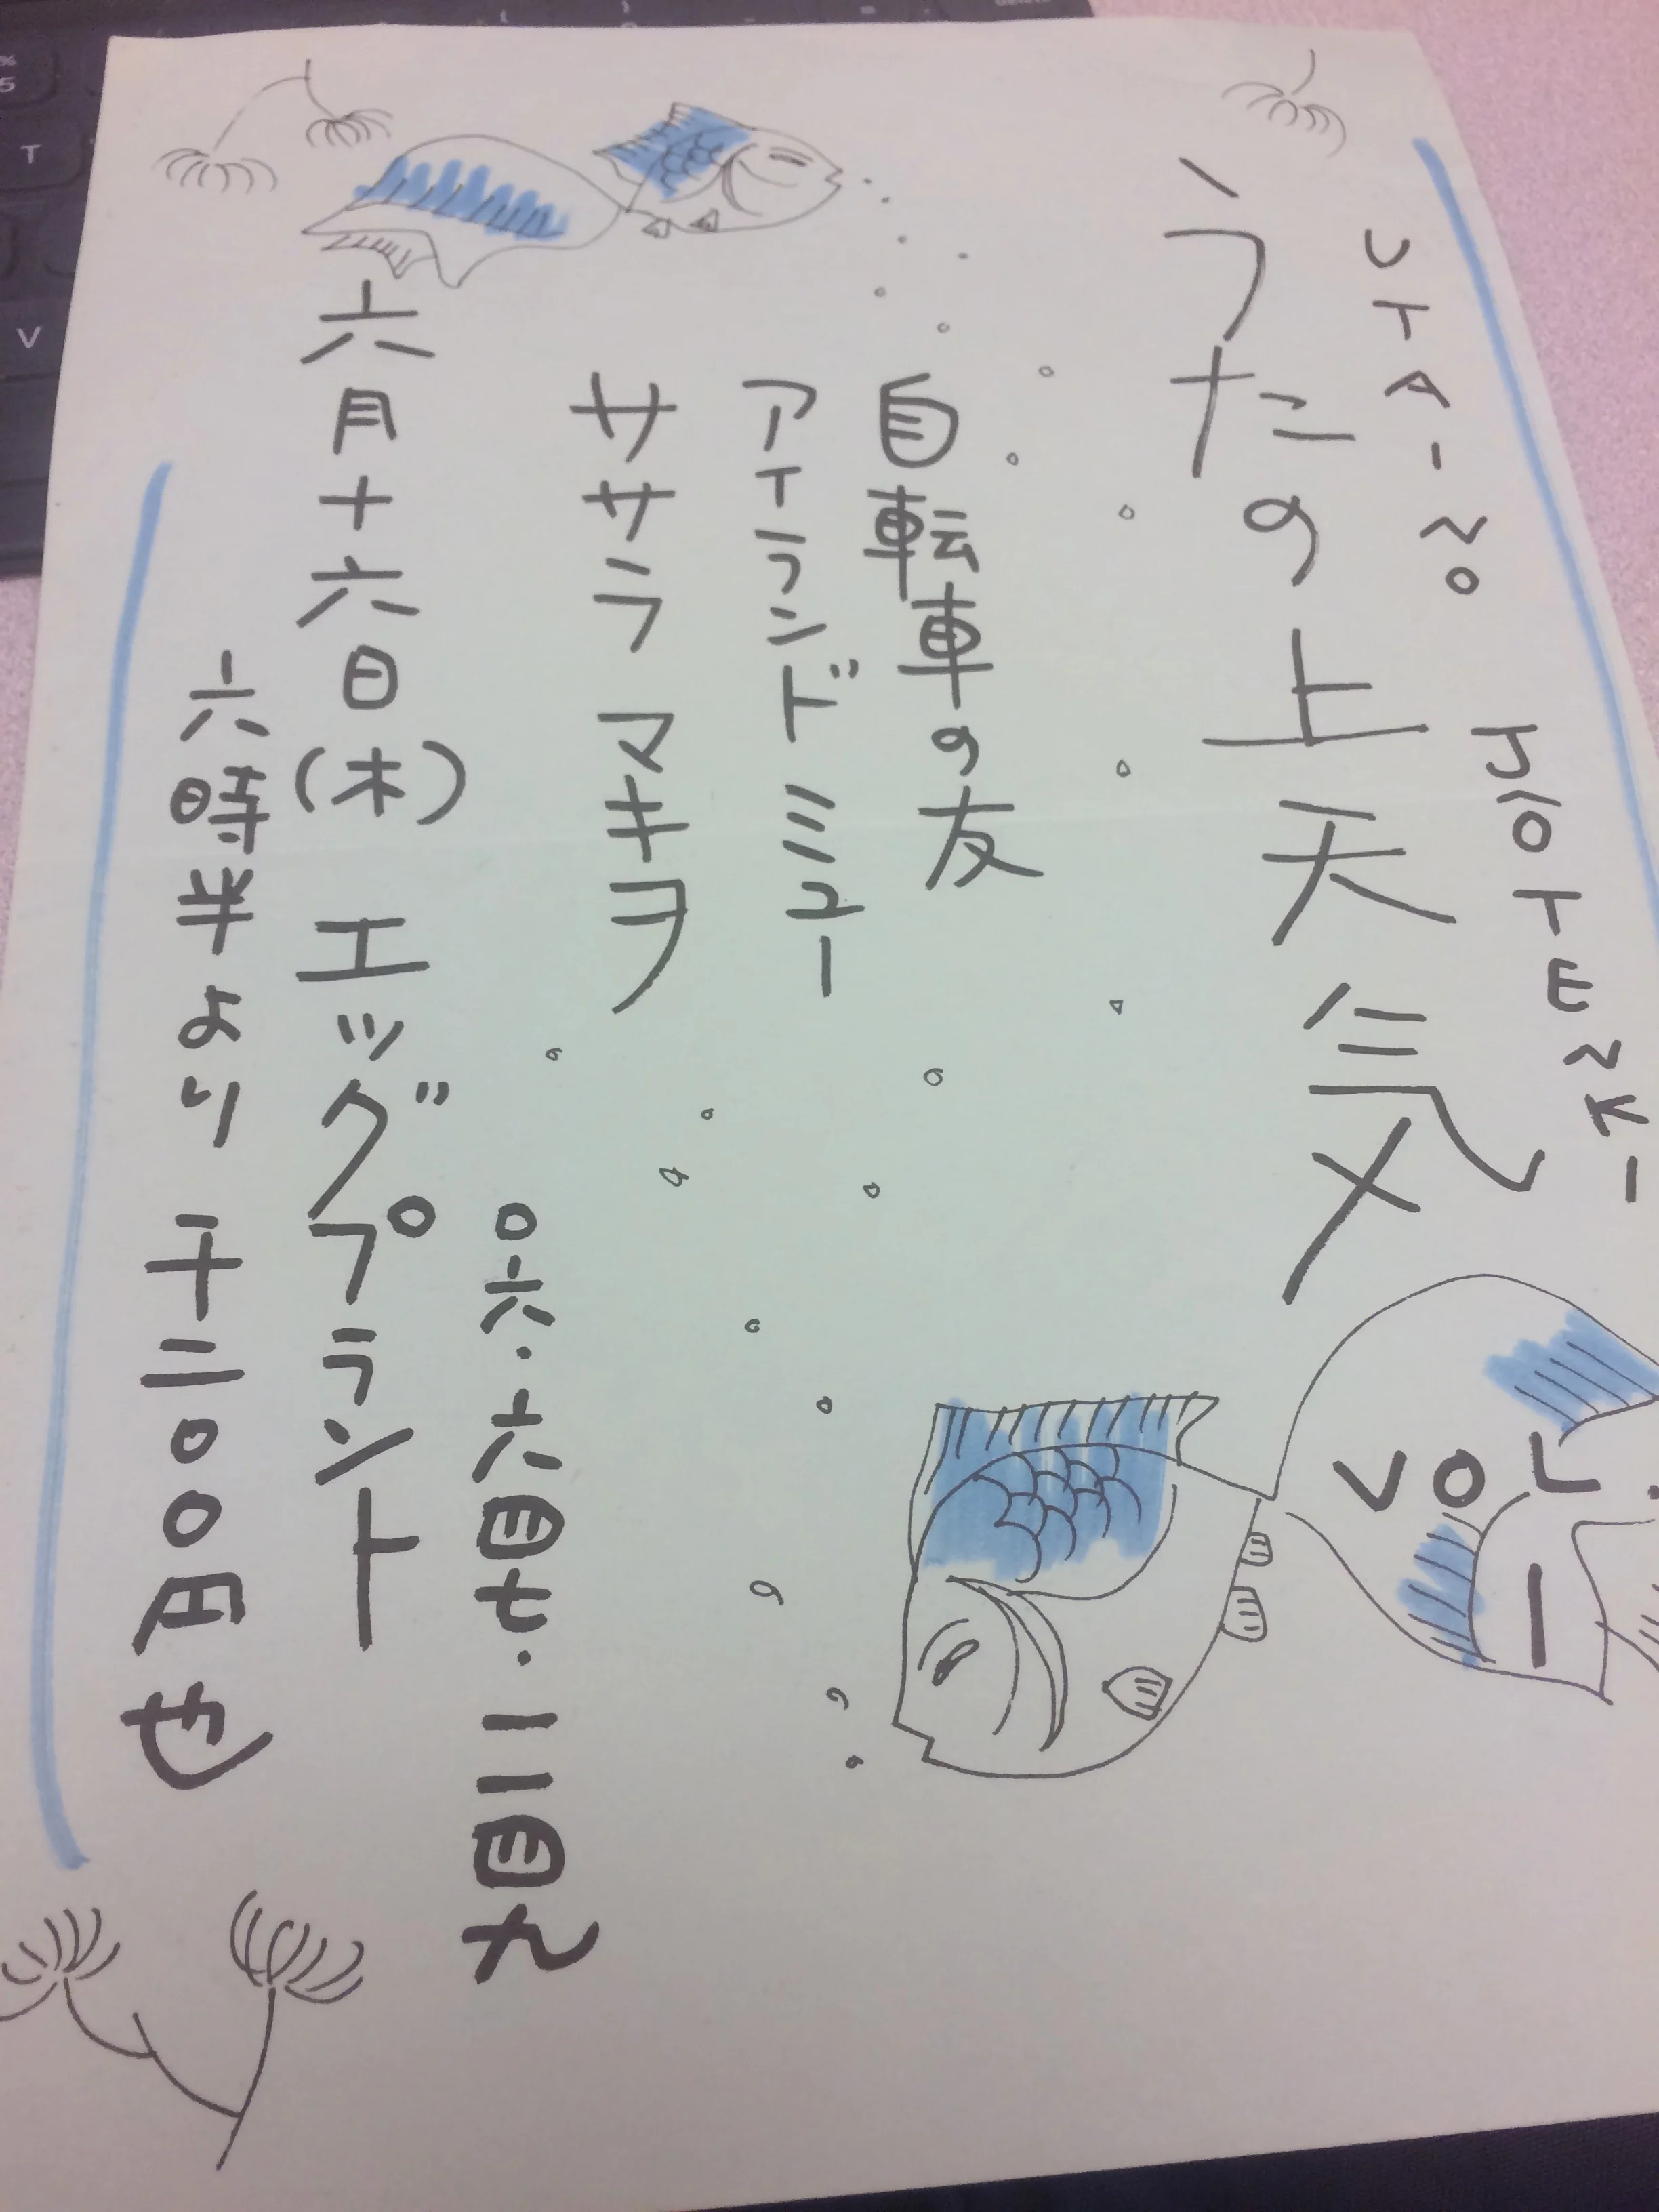 UTA-NO JYOTENKI
うたの上天気
VOL. 1
自転車の友
アイランドミュー
ササラ マキヲ
〇六・六四七・一一四九
六月十六日(木) エッグプラント
六時半より 千二〇〇円也